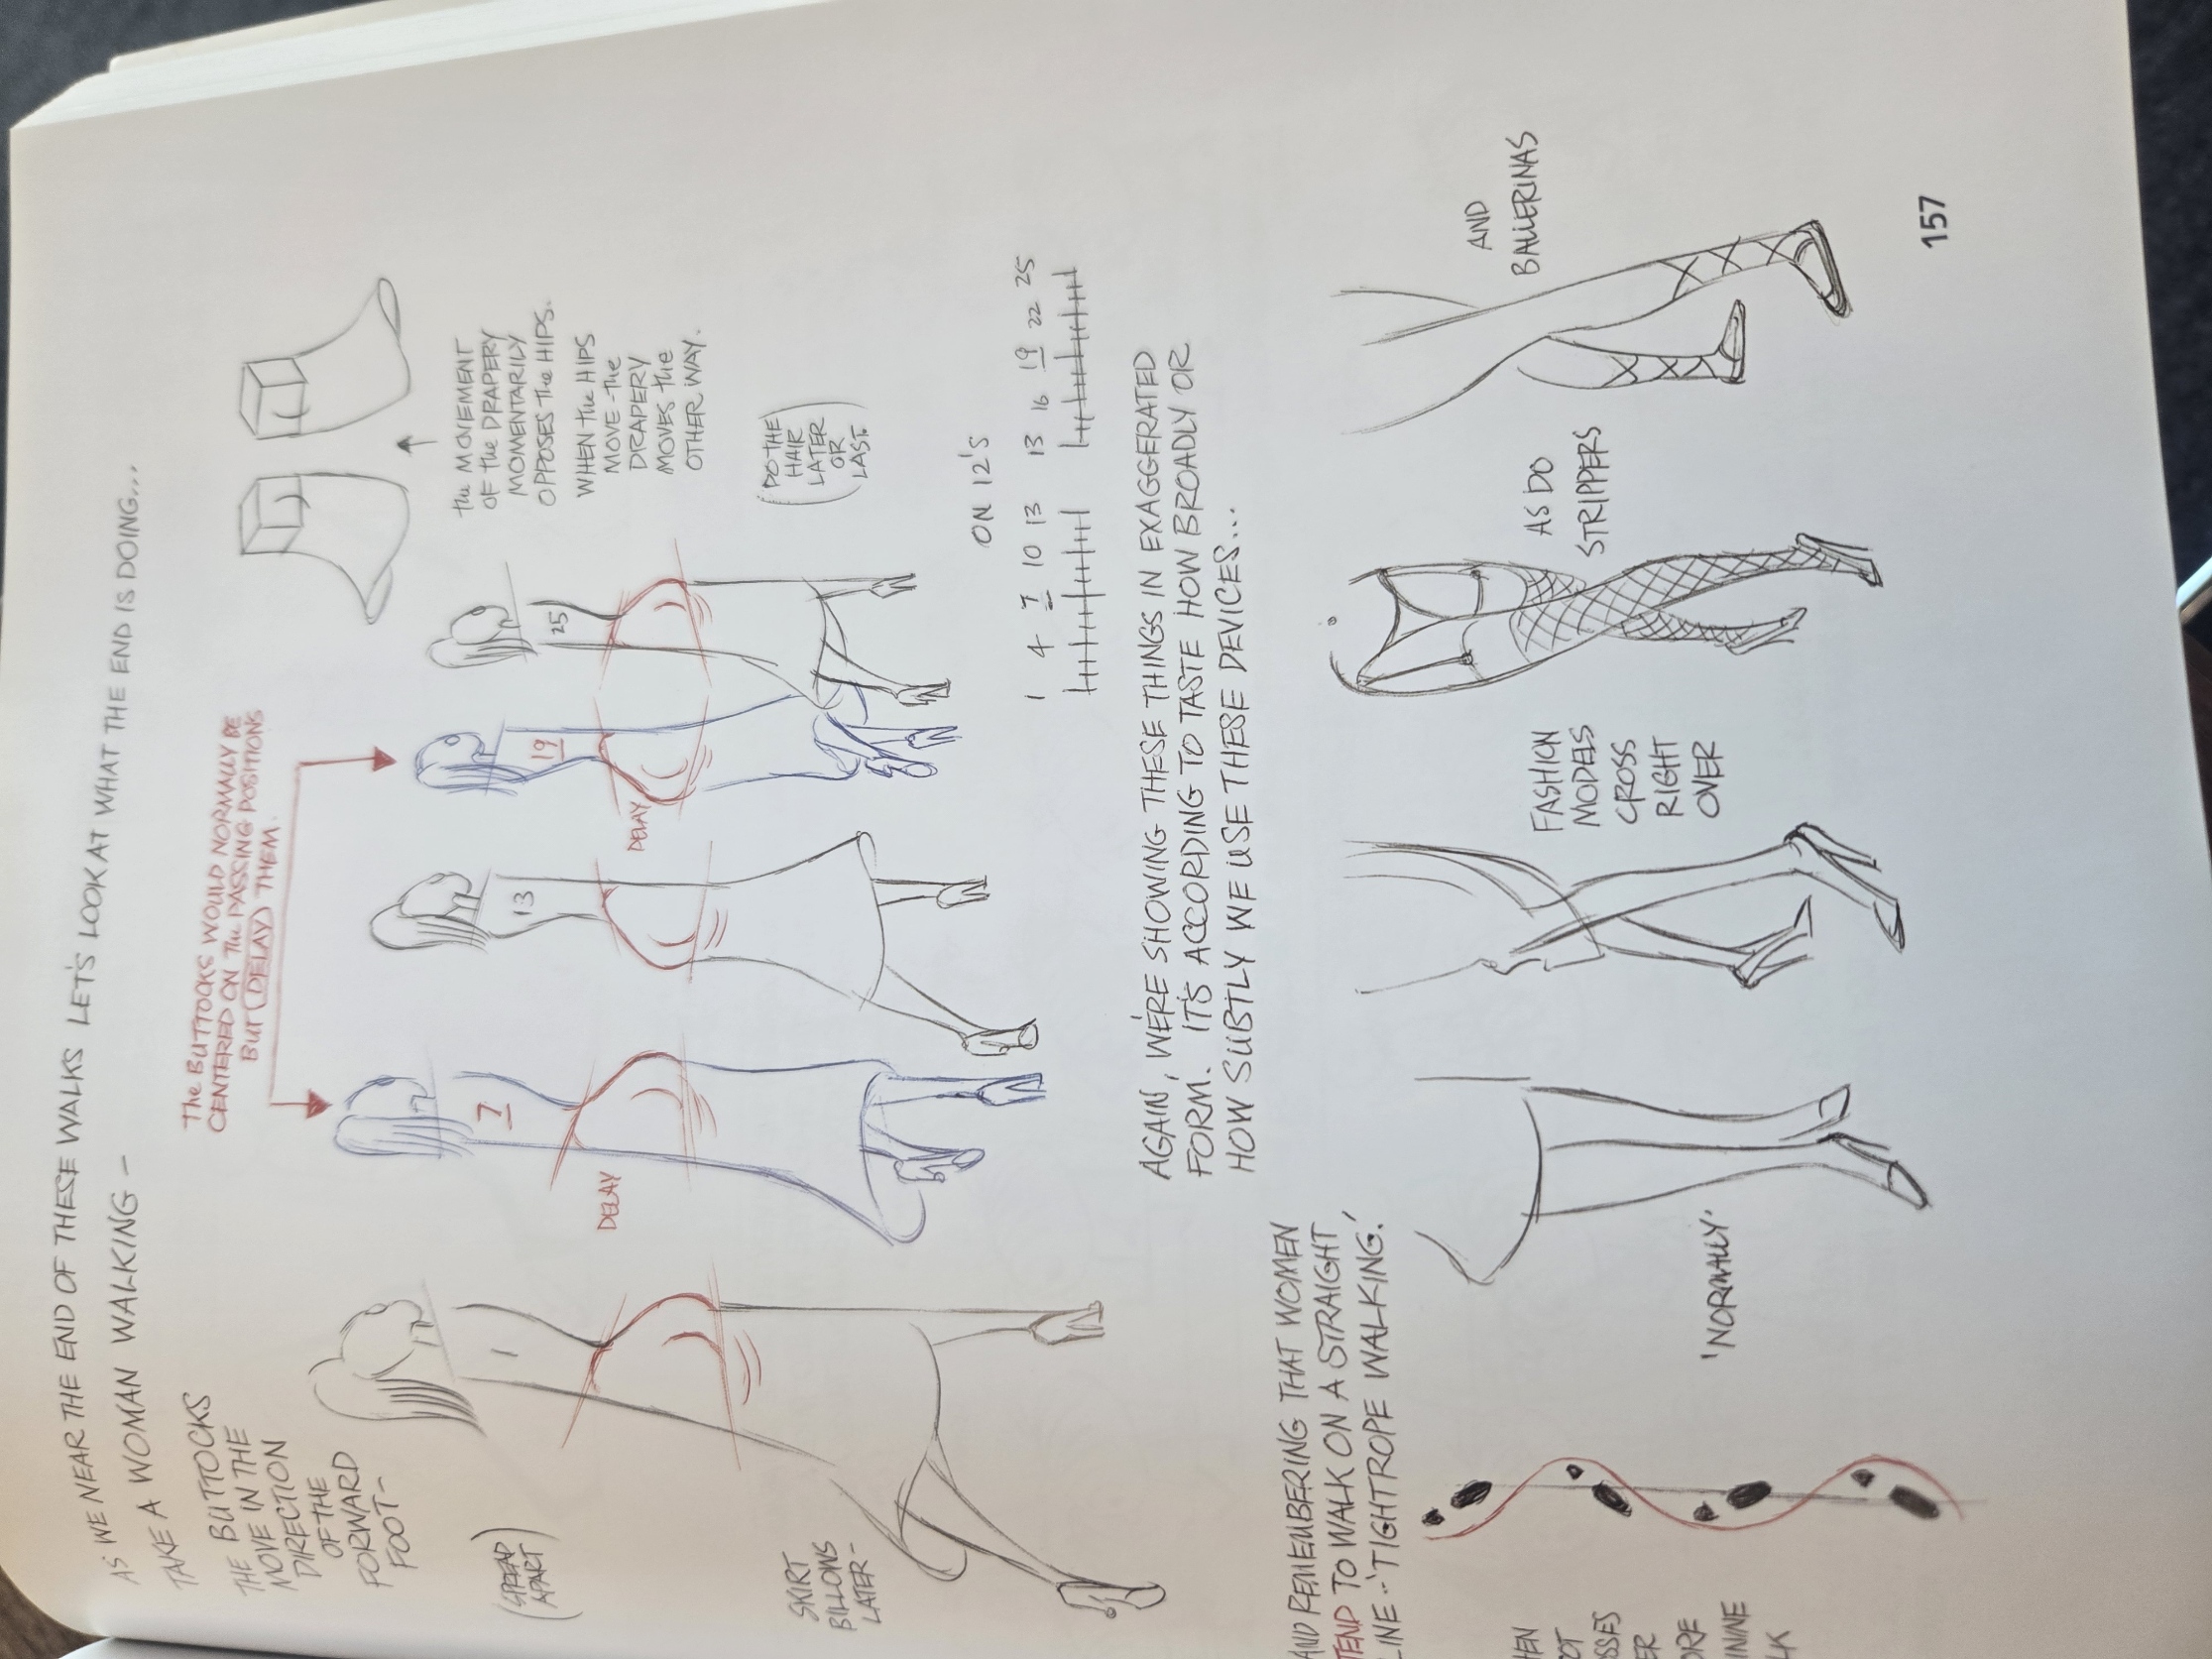 AS WE NEAR THE END OF THESE WALKS LET'S LOOK AT WHAT THE END IS DOING...
TAKE A WOMAN WALKING -
THE BUTTOCKS
MOVE IN THE
DIRECTION
OF THE
FORWARD
FOOT-
The BUTTOCKS WOULD NORMALLY BE
CENTERED ON The PASSING POSITIONS
BUT (DELAY) THEM.
(SPREAD
APART)
1
7
13
19
25
DELAY
DELAY
the MOVEMENT
OF the DRAPERY
MOMENTARILY
OPPOSES The HIPS.
WHEN the HIPS
MOVE -the
DRAPERY
MOVES the
OTHER WAY.
SKIRT
BILLOWS
LATER-
(DO THE
HAIR
LATER
OR
LAST.)
ON 12'S
1 4 7 10 13 13 16 19 22 25
AGAIN, WE'RE SHOWING THESE THINGS IN EXAGGERATED
FORM. IT'S ACCORDING TO TASTE HOW BROADLY OR
HOW SUBTLY WE USE THESE DEVICES...
AND REMEMBERING THAT WOMEN
TEND TO WALK ON A STRAIGHT
LINE -'TIGHTROPE WALKING.'
HEN
OT
SSES
ER
ORE
ININE
LK
'NORMALLY'
FASHION
MODELS
CROSS
RIGHT
OVER
AS DO
STRIPPERS
AND
BALLERINAS
157